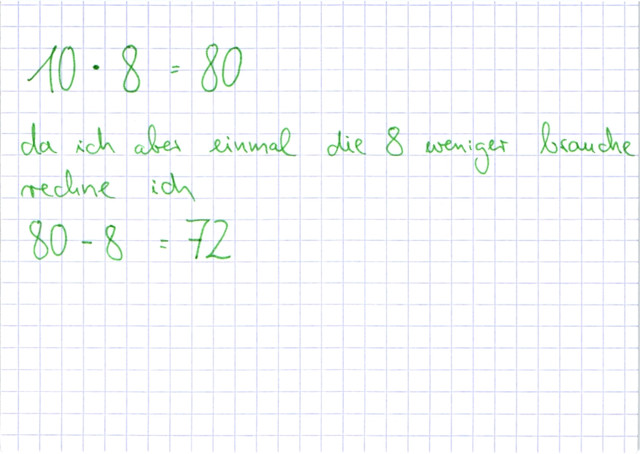 10 · 8 = 80
da ich aber einmal die 8 weniger brauche
rechne ich
80 - 8 = 72